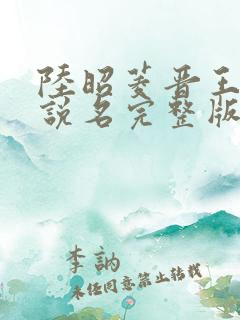 陸昭菱晋王
說名完整版
李訥
未任同意禁止转載